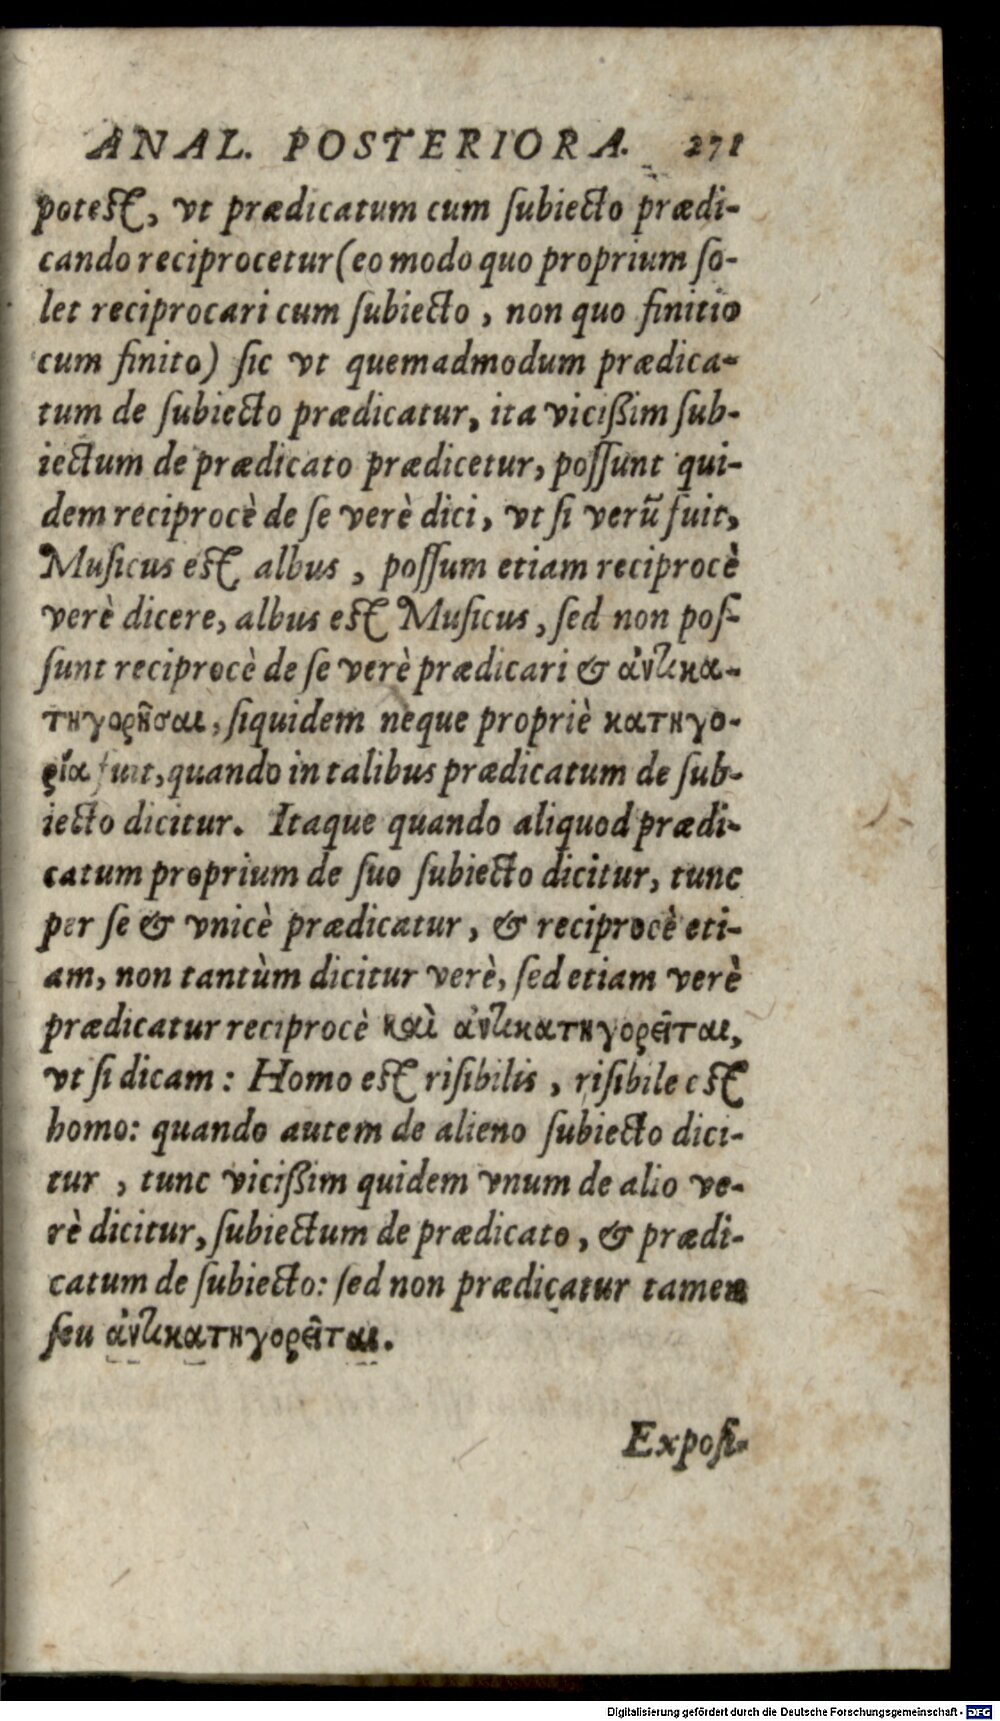 ANAL. POSTERIORA. 271
potest, vt prædicatum cum ſubiecto prædi-
cando reciprocetur (eo modo quo proprium ſo-
let reciprocari cum ſubiecto, non quo finitio
cum finito) ſic vt quemadmodum prædica-
tum de ſubiecto prædicatur, ita viciſſim ſub-
iectum de prædicato prædicetur, poſſunt qui-
dem reciprocè de ſe verè dici, vt ſi verũ fuit,
Muſicus est albus, poſſum etiam reciprocè
verè dicere, albus est Muſicus, ſed non poſ-
ſunt reciprocè de ſe verè prædicari & ἀντικα-
τηγορῆσαι, ſiquidem neque propriè κατηγο-
ρία fuit, quando in talibus prædicatum de ſub-
iecto dicitur. Itaque quando aliquod prædi-
catum proprium de ſuo ſubiecto dicitur, tunc
per ſe & vnicè prædicatur, & reciprocè eti-
am, non tantùm dicitur verè, ſed etiam verè
prædicatur reciprocè καὶ ἀντικατηγορεῖται,
vt ſi dicam: Homo est riſibilis, riſibile est
homo: quando autem de alieno ſubiecto dici-
tur, tunc viciſſim quidem vnum de alio ve-
rè dicitur, ſubiectum de prædicato, & prædi-
catum de ſubiecto: ſed non prædicatur tamen
ſeu ἀντικατηγορεῖται.
Expoſi-
Digitalisierung gefördert durch die Deutsche Forschungsgemeinschaft - DFG